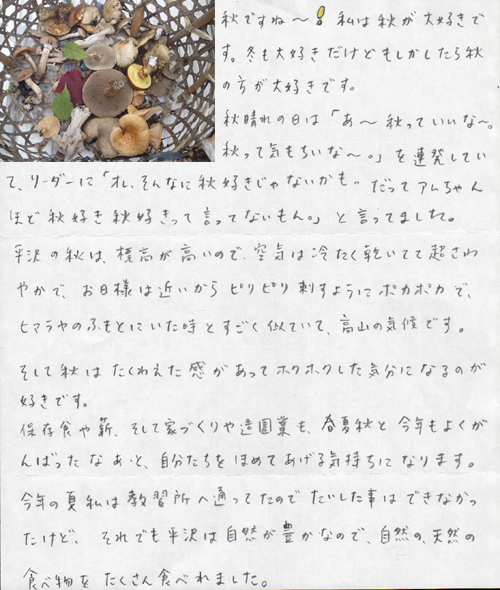 秋ですね～! 私は秋が大好きで
す。冬も大好きだけどもしかしたら秋
の方が大好きです。
秋晴れの日は「あ～秋っていいな～。
秋って気もちいな～。」を連発してい
て、リーダーに「オレ、そんなに秋好きじゃないかも。だってアムちゃん
ほど秋好き秋好きって言ってないもん。」と言ってました。
平沢の秋は、標高が高いので、空気は冷たく乾いてて超さわ
やかで、お日様は近いからピリピリ刺すようにポカポカで、
ヒマラヤのふもとにいた時とすごく似ていて、高山の気候です。
そして秋はたくわえた感があってホクホクした気分になるのが
好きです。
保存食や薪、そして家づくりや造園業も、春夏秋と今年もよくが
んばったなあ・と、自分たちをほめてあげる気持ちになります。
今年の夏私は教習所へ通ってたのでたいした事はできなかっ
たけど、それでも平沢は自然が豊かなので、自然の、天然の
食べ物をたくさん食べれました。